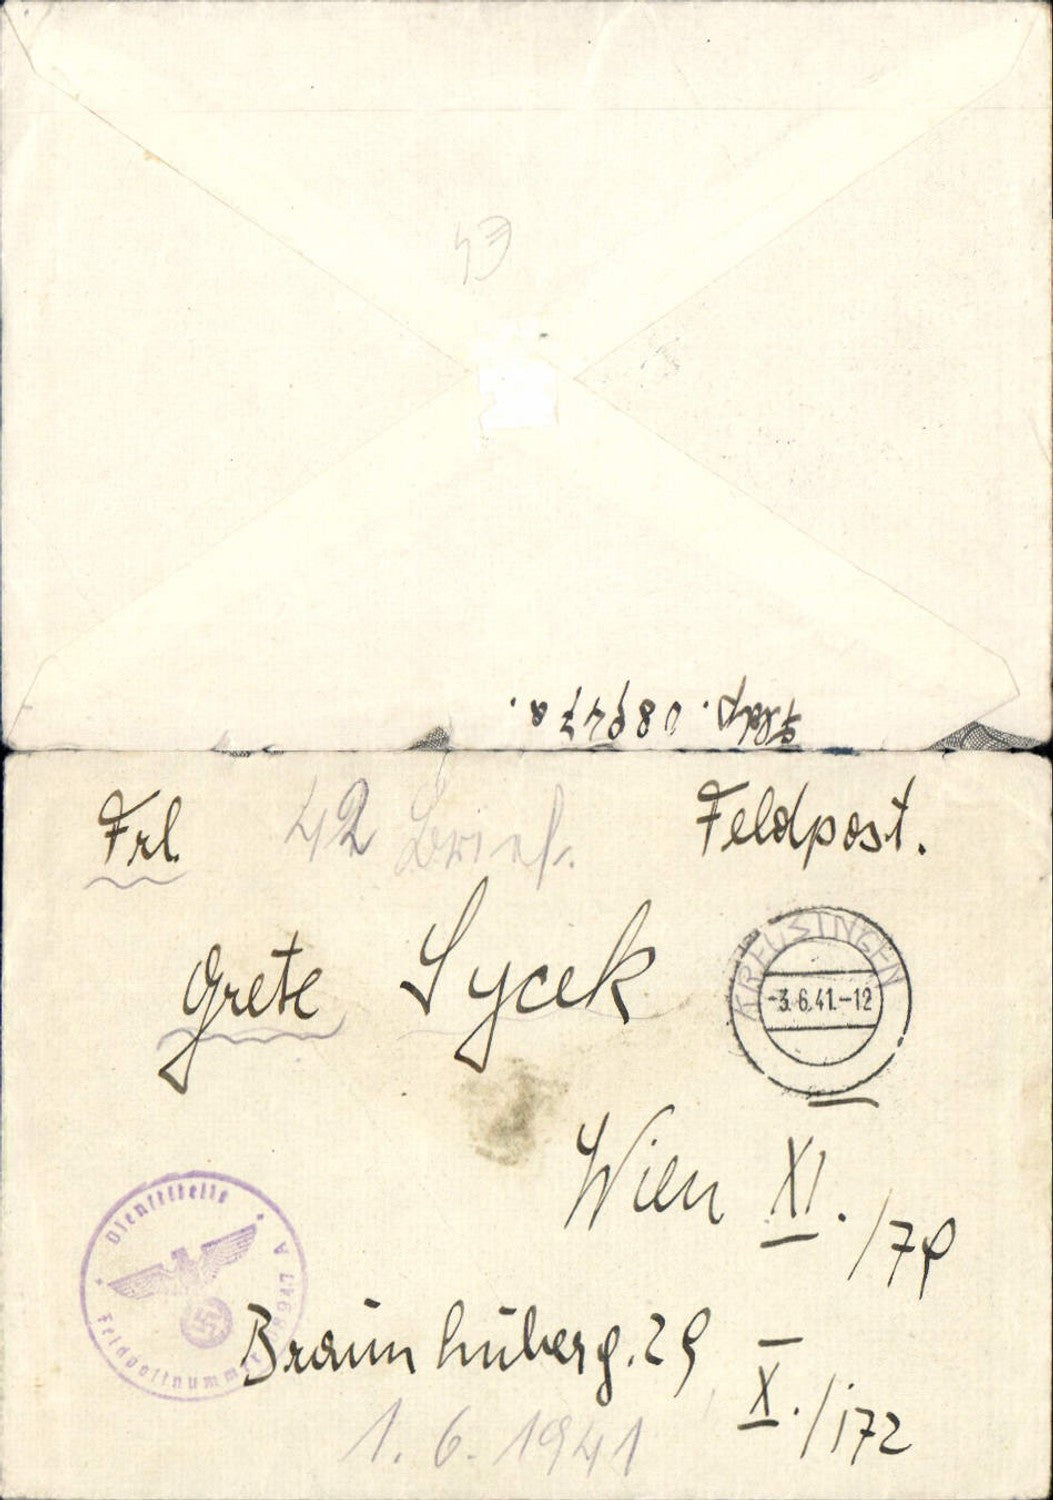 43
Feldp. 08947 a.
Frl.
42 Brief.
Feldpost.
Grete Sycek
KREUSINGEN
-3.6.41.-12
Wien XI./79
Dienststelle
Feldpostnummer 08947 A
Braunhuberg. 29
X./172
1. 6. 1941